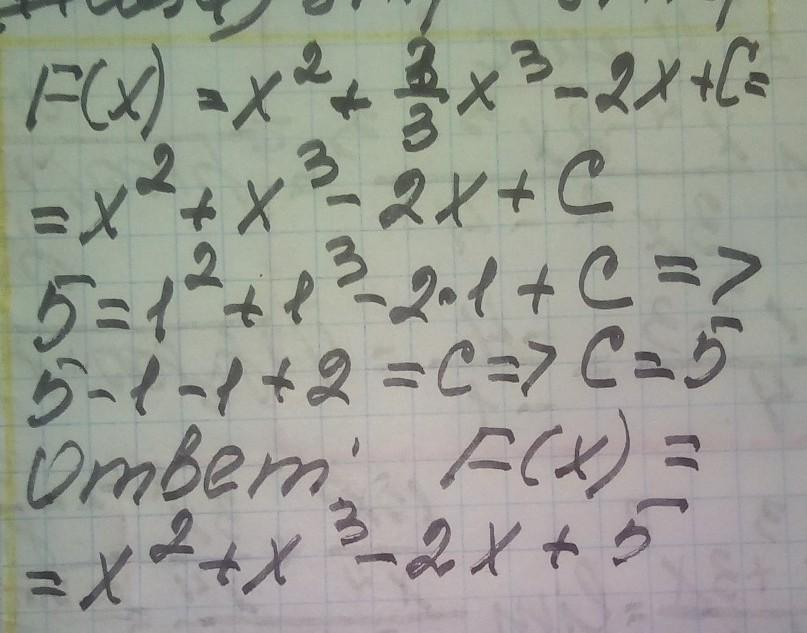 F(x) = x² + 3/3 x³ - 2x + C =
= x² + x³ - 2x + C
5 = 1² + 1³ - 2·1 + C =>
5 - 1 - 1 + 2 = C => C = 5
Ответ: F(x) =
= x² + x³ - 2x + 5